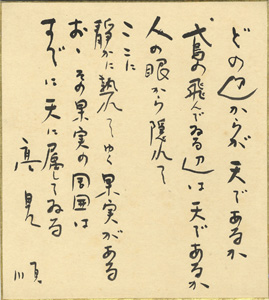 どの辺からが天であるか
鳶の飛んでゐる辺は天であるか
人の眼から隠れて
ここに
静かに熟れてゆく果実がある
おゝその果実の周囲は
すでに天に属してゐる
高見順